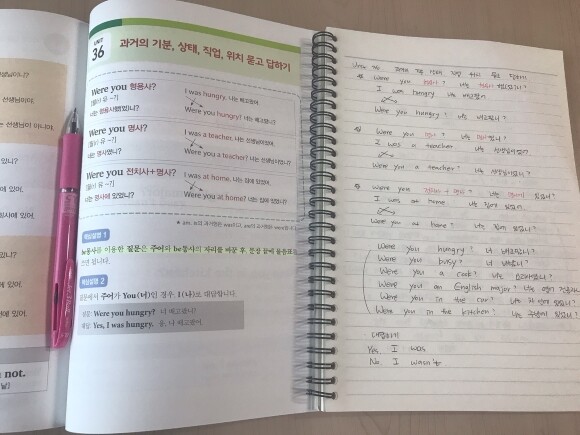 생님이니?
선생님이야.
는 선생님이 아니야.
있니?
에 있어.
방에 있어.
not.
UNIT
36
과거의 기분, 상태, 직업, 위치 묻고 답하기
Were you 형용사?
너는 형용사했었니?
I was hungry. 나는 배고팠어.
Were you hungry? 너는 배고팠니?
Were you 명사?
너는 명사였니?
I was a teacher. 나는 선생님이었어.
Were you a teacher? 너는 선생님이었니?
Were you 전치사+명사?
너는 명사에 있었니?
I was at home. 나는 집에 있었어.
Were you at home? 너는 집에 있었니?
핵심설명 1
be동사를 이용한 질문은 주어와 be동사의 자리를 바꾼 후, 문장 끝에 물음표
핵심설명 2
질문에서 주어가 You (너)인 경우, I (나)로 대답합니다.
질문: Were you hungry? 너 배고팠니?
대답: Yes, I was hungry. 응, 나 배고팠어.
과거의 기분 상태 직업 위치 묻고 답하기
Were you 형용사?
I was hungry 나는 배고팠어
Were you hungry? 너는 배고팠니?
Were you 명사? 너는 명사였니?
I was a teacher 나는 선생님이었어
Were you a teacher? 너는 선생님이었니?
Were you 전치사+명사? 너는 명사에 있었니?
I was at home 나는 집에 있었어
Were you at home? 너는 집에 있었니?
Were you hungry? 너 배고팠니?
Were you busy? 너 바빴니?
Were you a cook? 너는 요리사였니?
Were you an English major? 너는 영어
Were you in the car? 너 차 안에 있었니?
Were you in the kitchen? 너는 주방에 있었니?
대답하기
Yes. I was
No. I wasn't